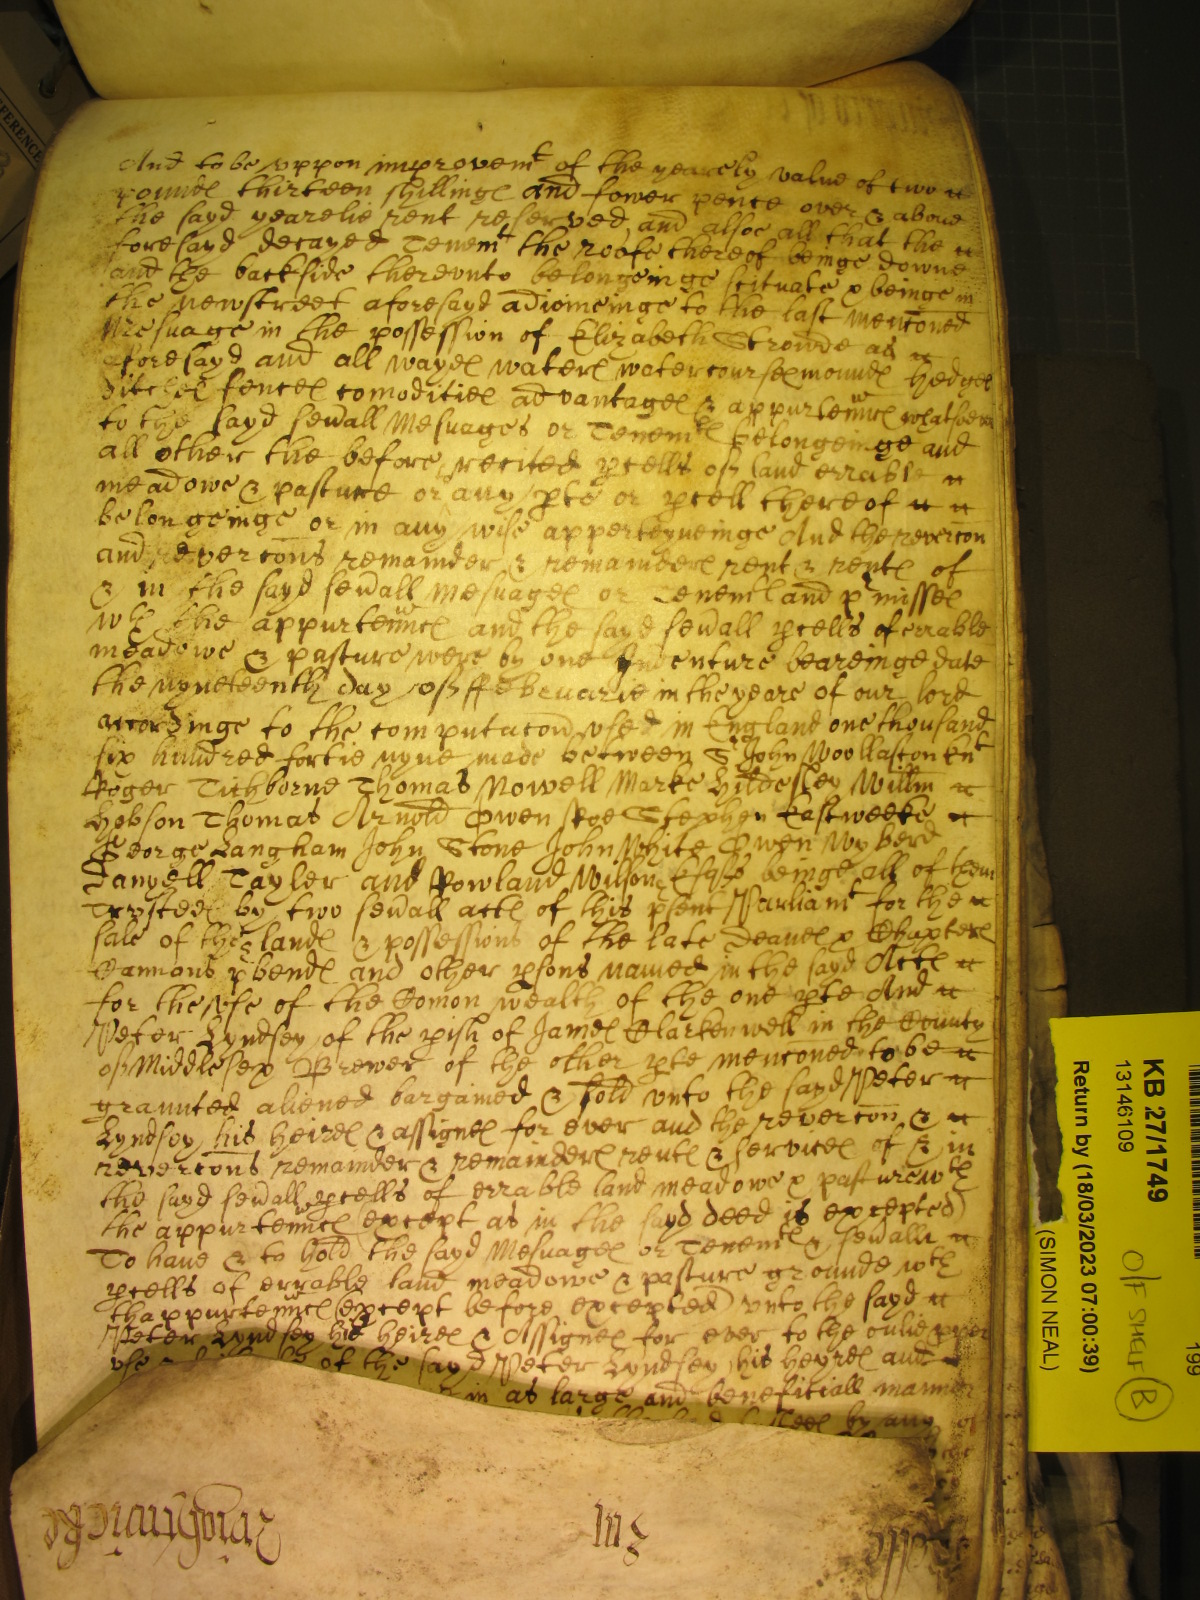 And to be vppon improvemt of the yearely value of two
poundes thirteen shillinges and fower pence over & above
the sayd yearelie rent reserved and alsoe all that the
foresayd decayed Tenemt the roofe thereof beinge downe
and the backside therevnto belongeinge scituate & beinge in
the newstreet aforesayd adioineinge to the last menconed
Mesuage in the possession of Elizabeth Strowde as
aforesayd and all wayes waters watercourses moundes hedges
ditches fences comodities advantages & appurtenncs whatsoever
to the sayd sevall Mesuages or Tenemts belongeinge and
all other the before recited pcells of land errable
meadowe & pasture or any pte or pcell thereof
belongeinge or in any wise apperteyneinge And the revercon
and revercons remainder & remainders rent & rents of
& in the sayd sevall Mesuages or Tenemts and pmisses
wth the appurtenncs and the sayd sevall pcells of errable
meadowe & pasture were by one Indenture beareinge date
the nyneteenth day of ffebruarie in the yeare of our lord
accordinge to the computacon vsed in England one thousand
six hundred fortie nyne made between Sr John Woollaston knt
Roger Tichborne Thomas Nowell Marke Hildesley Willm
Hobson Thomas Arnold Owen Roe Stephen Eastweeke
George Langham John Stone John White Owen Wyberd
Danyell Tayler and Rowland Wilson Esqrs beinge all of them
Trustees by two sevall actes of this psent Parliamt for the
sale of the landes & possessions of the late Deanes & Chapters
Cannons pbends and other psons named in the sayd Actes
for the vse of the Comon wealth of the one pte And
Peter Lyndsey of the pish of James Clarkenwell in the County
of Middlesex Brewer of the other pte menconed to be
graunted aliened bargained & sold vnto the sayd Peter
Lyndsey his heires & assignes for ever and the revercon &
revercons remainder & remainders rents & services of & in
the sayd sevall pcells of errable land meadowe & pasture wth
the appurtenncs (except as in the sayd deed is excepted)
To have & to hold the sayd Mesuages or Tenemts & sevall
pcells of errable land meadowe & pasture grounde wth
thappurtenncs (except before excepted) vnto the sayd
Peter Lyndsey his heires & Assignes for ever to the onlie pper
vse of the sayd Peter Lyndsey his heyres and
in as large and beneficiall manner
by any
KB 27/1749
13146109
Return by (18/03/2023 07:00:39)
(SIMON NEAL)
O/F SHELF B
199